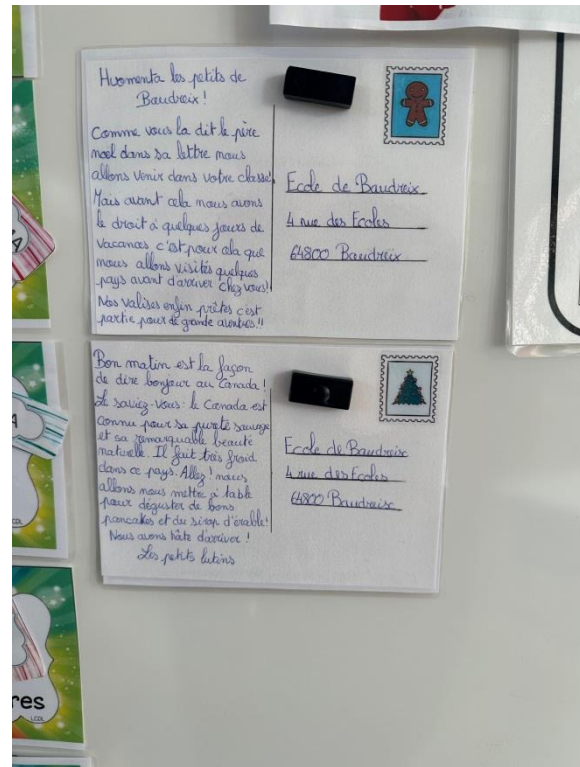 Huomenta les petits de
Baudreix !
Comme vous la dit le père
noel dans sa lettre nous
allons venir dans votre classe!
Mais avant cela nous avons
le droit à quelques jours de
vacances c'est pour cela que
nous allons visités quelques
pays avant d'arriver chez vous!
Nos valises enfin prêtes c'est
partie pour de grande aventures.!!
Ecole de Baudreix
4 rue des Ecoles
64800 Baudreix
Bon matin est la façon
de dire bonjour au Canada!
Le saviez-vous: le Canada est
connu pour sa pureté sauvage
et sa remarquable beauté
naturelle. Il fait très froid
dans ce pays. Allez! nous
allons nous mettre à table
pour déguster de bons
pancakes et du sirop d'érable!
Nous avons hâte d'arriver !
Les petits lutins
Ecole de Baudreix
4 rue des Ecoles
64800 Baudreix
A
A
LCDL
res
LCDL